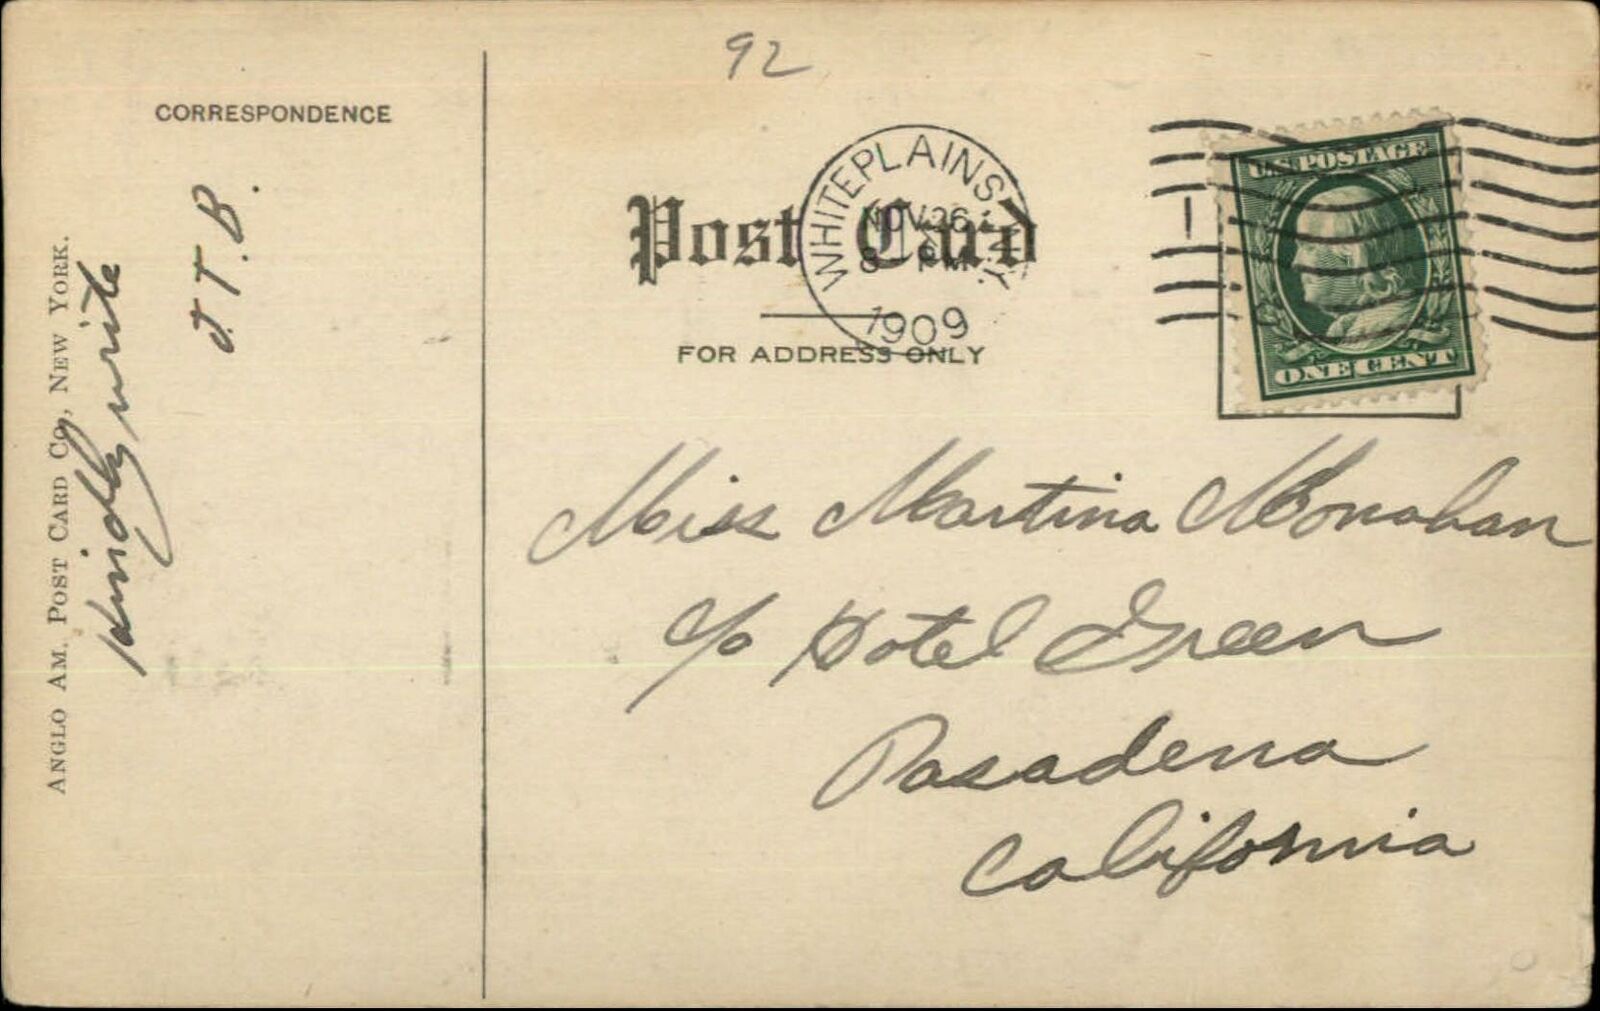 92
CORRESPONDENCE
Kindly write
J. T. B.
ANGLO AM. POST CARD CO., NEW YORK.
Post Card
FOR ADDRESS ONLY
WHITE PLAINS, N.Y.
NOV 26
8 PM
1909
1
U.S. POSTAGE
ONE CENT
Miss Martina Monahan
c/o Hotel Green
Pasadena
California